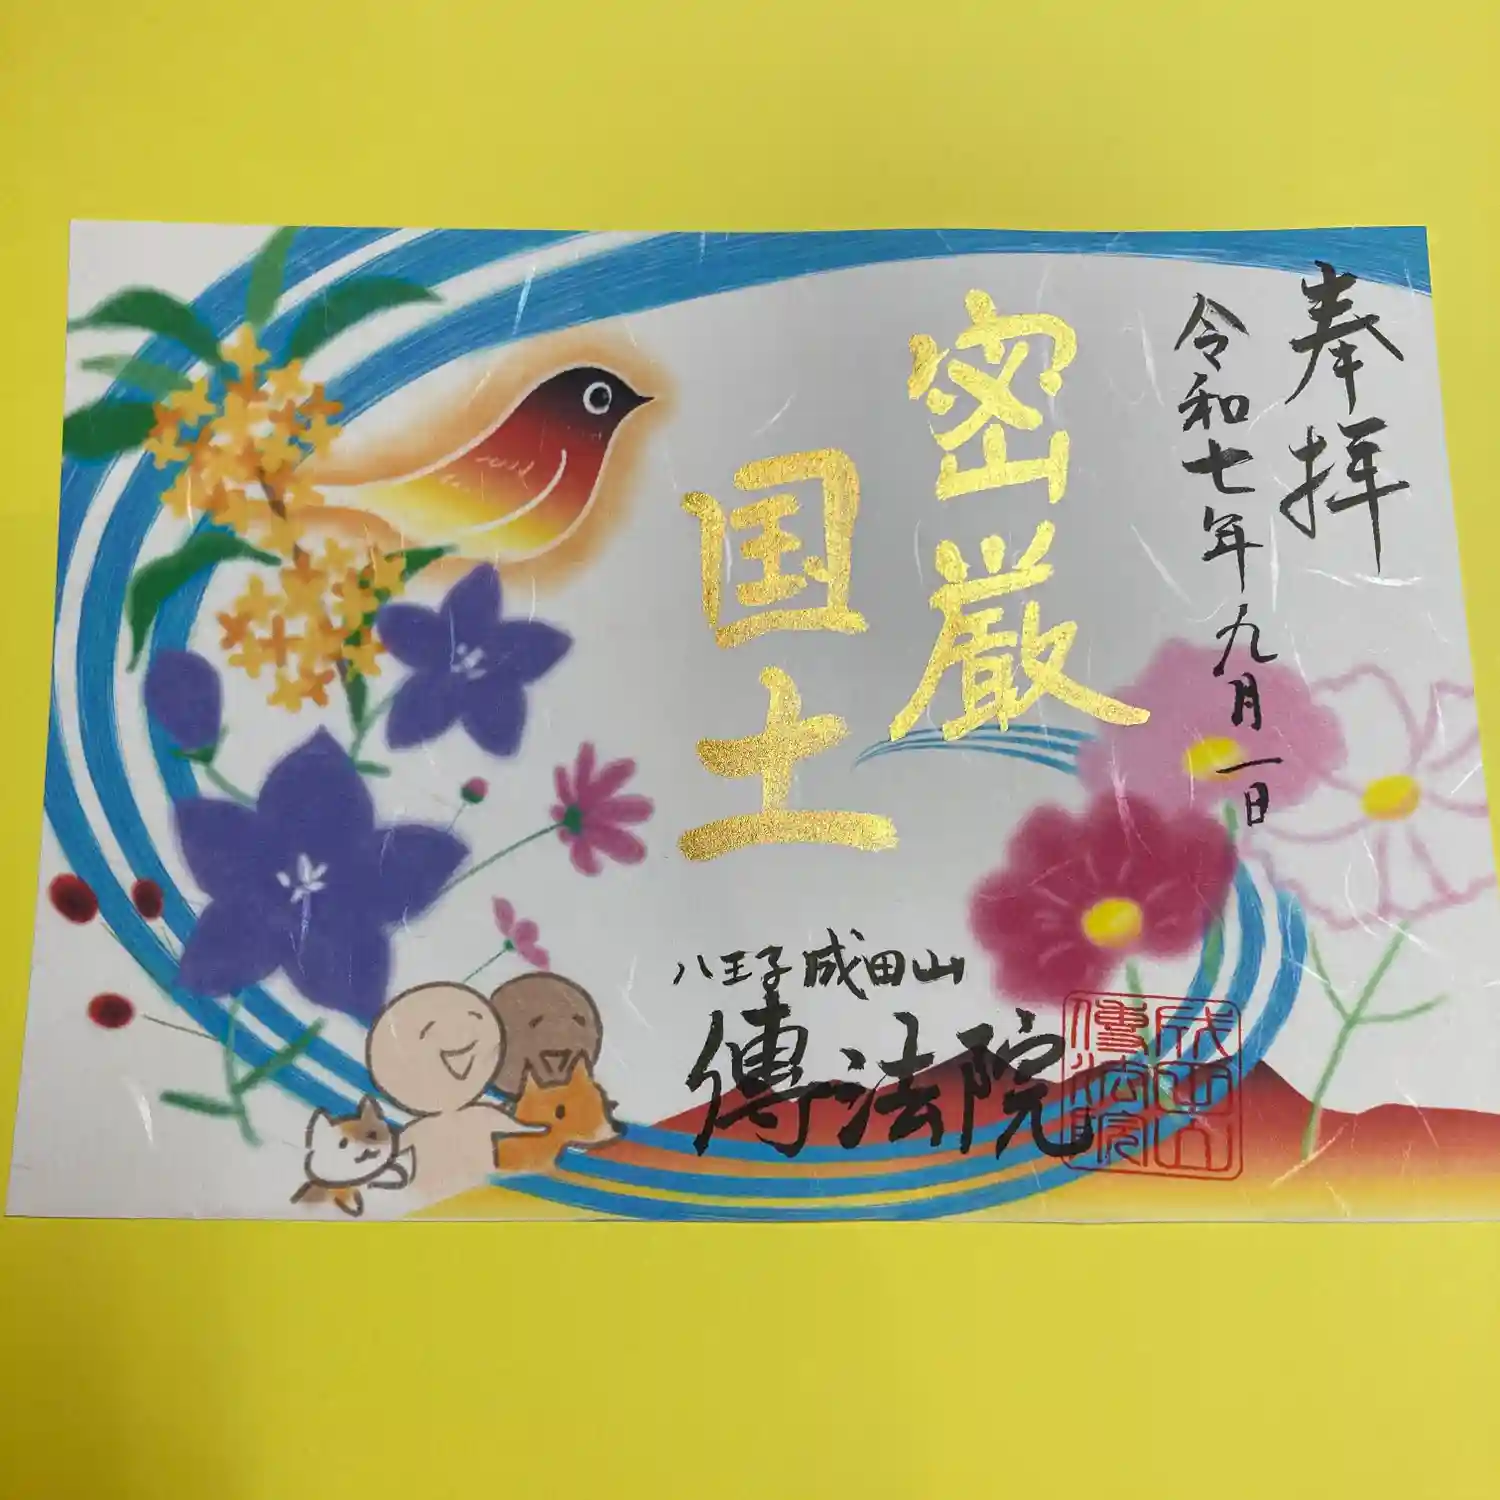 奉拝
令和七年九月一日
密厳
国土
八王子成田山
傳法院
成田山
傳法院